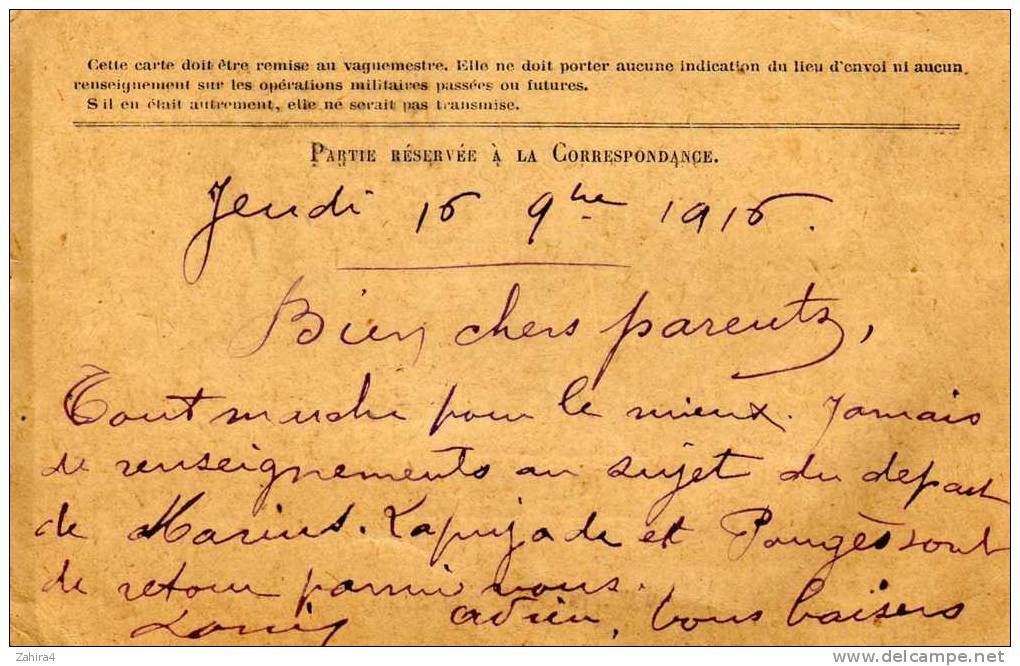 Cette carte doit être remise au vaguemestre. Elle ne doit porter aucune indication du lieu d'envoi ni aucun
renseignement sur les opérations militaires passées ou futures.
S'il en était autrement, elle ne serait pas transmise.
PARTIE RÉSERVÉE À LA CORRESPONDANCE.
Jeudi 16 9bre 1916.
Bien chers parents,
Tout marche pour le mieux. Jamais
de renseignements au sujet du depart
de Marius. Lapujade et Pougès sont
de retour parmi nous.
adieu, bons baisers
Louis
Zahira4
delcampe.net